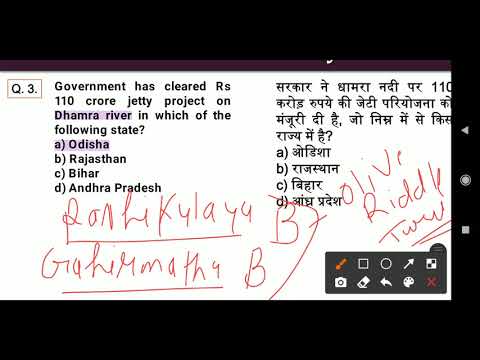 Q. 3.
Government has cleared Rs
110 crore jetty project on
Dhamra river in which of the
following state?
a) Odisha
b) Rajasthan
c) Bihar
d) Andhra Pradesh
सरकार ने धामरा नदी पर 110
करोड़ रुपये की जेटी परियोजना को
मंजूरी दी है, जो निम्न में से किस
राज्य में है?
a) ओडिशा
b) राजस्थान
c) बिहार
d) आंध्र प्रदेश
B
Gahirmatha B
Olive
Riddle